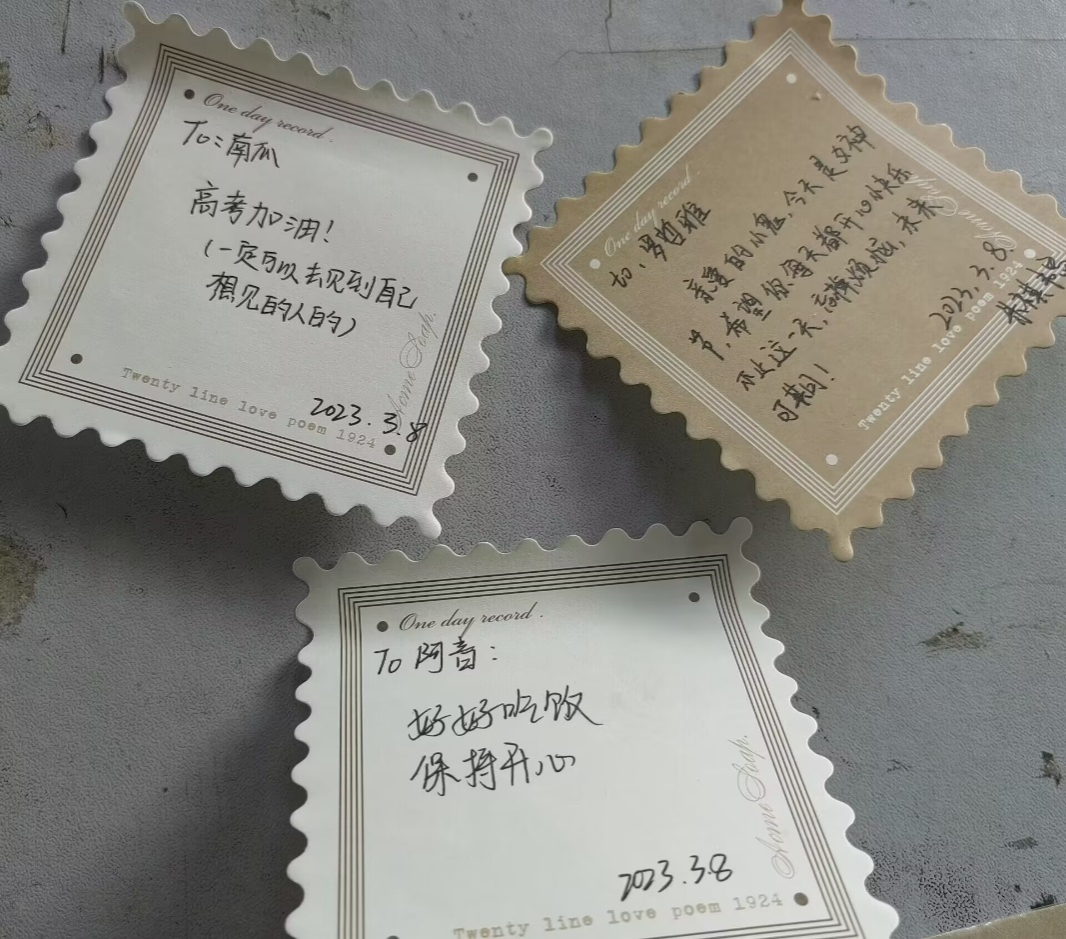 One day record.
To:南瓜
高考加油!
(一定可以去见到自己
想见的人的)
Home Soap.
2023.3.8
Twenty line love poem 1924
One day record.
to、罗哲雅
亲爱的小鬼,今天是女神
节,希望你每天都开心快乐
不止这一天,忘掉烦恼,未来
可期!
2023.3.8
Home Soap.
Twenty line love poem 1924
One day record.
To 阿音:
好好吃饭
保持开心
Home Soap.
2023.3.8
Twenty line love poem 1924